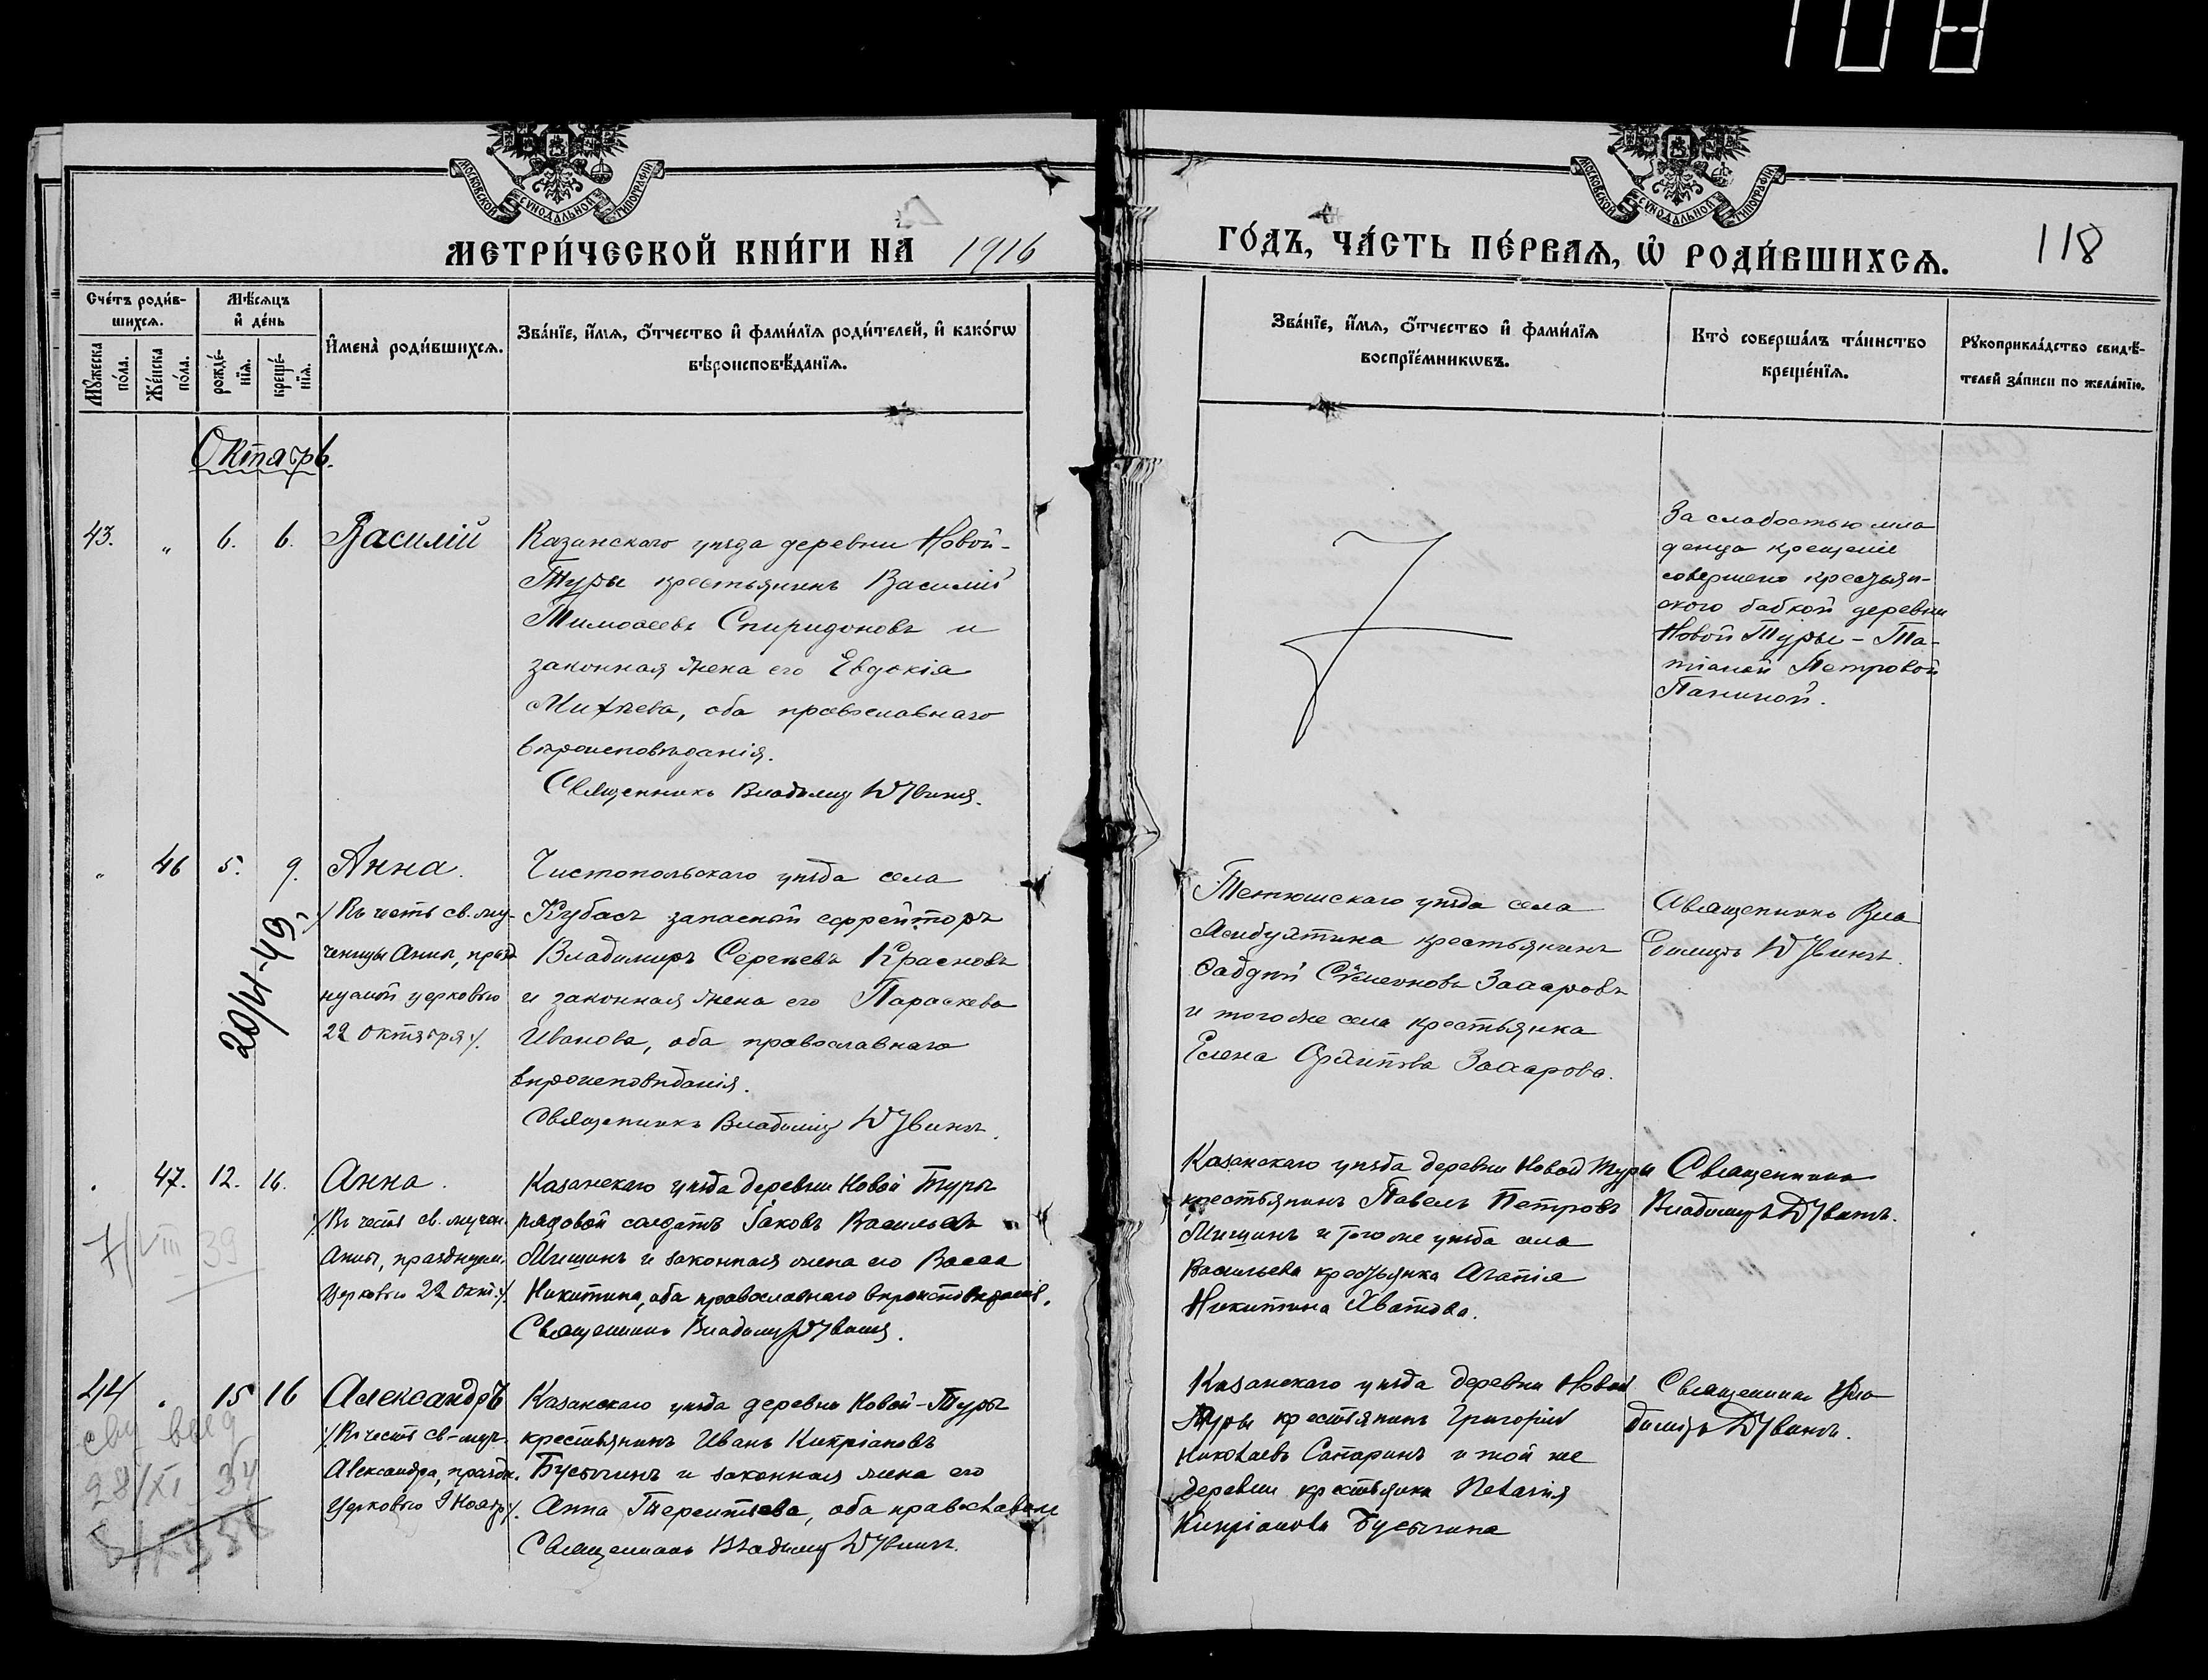 108
МОСКОВСКОЙ СѴНОДАЛЬНОЙ ТИПОГРАФІИ
МОСКОВСКОЙ СѴНОДАЛЬНОЙ ТИПОГРАФІИ
МЕТРИ́ЧЕСКОЙ КНИ́ГИ НА̀ 1916
ГО́ДЪ, ЧА́СТЬ ПЕ́РВАѦ, Ѡ҆ РОДИ́ВШИХСѦ.
118
Сче́тъ роди́в-
шихсѧ.
Мꙋ́жеска по́ла.
Же́нска по́ла.
Мѣ́сѧцъ
и҆ де́нь
рожде́-
нїѧ.
креще́-
нїѧ.
И҆мена̀ роди́вшихсѧ.
Зва́нїе, и҆́мѧ, ѻ҆́тчество и҆ фами́лїѧ роди́телей, и҆ како́гѡ
вѣроисповѣ́данїѧ.
Зва́нїе, и҆́мѧ, ѻ҆́тчество и҆ фами́лїѧ
воспрїе́мникѡвъ.
Кто̀ соверша́лъ та́инство
креще́нїѧ.
Рꙋкоприкла́дство свидѣ́-
телей за́писи по жела́нїю.
Октябрь.
43. „ 6. 6. Василій
Казанскаго уѣзда деревни Новой-
Туры крестьянинъ Василій
Тимоѳеевъ Спиридоновъ и
законная жена его Евдокія
Михѣева, оба православнаго
вѣроисповѣданія.
Священникъ Владиміръ
За слабостью мла
денца крещеніе
совершено крестьян-
скою бабкой деревни
Новой Туры - Та-
тіаной Петровой
Паниной.
„ 46 5. 9. Анна.
/Въ честь св. му-
ченицы Анны, празд
нуемой церковью
22 октября/.
20/4-49
Чистопольскаго уѣзда села
Кубасъ запасный ефрейторъ
Владимиръ Сергѣевъ Красновъ
и законная жена его Параскева
Иванова, оба православнаго
вѣроисповѣданія.
Священникъ Владиміръ
Тетюшскаго уѣзда села
крестьянинъ
Ѳаддей Симеоновъ Захаровъ
и того же села крестьянка
Елена Захарова.
Священникъ Вла
диміръ
47. 12. 16. Анна.
/Въ честь св. мучен.
Анны, празднуем.
церковью 22 окт./.
7/VIII 39
Казанскаго уѣзда деревни Новой Туры
рядовой солдатъ Іаковъ Васильевъ
Мишинъ и законная жена его Васса
Никитина, оба православнаго вѣроисповѣданія.
Священникъ Владиміръ
Казанскаго уѣзда деревни Новой Туры
крестьянинъ Павелъ Петровъ
Мишинъ и того же уѣзда села
Васильева крестьянка Агапія
Никитина Хватова.
Священникъ
Владиміръ
44 . 15 16 Александръ
/Въ честь св-муч.
Александра, праздн.
церковью 9 Нояб./.
28/XI 34
Казанскаго уѣзда деревни Новой-Туры
крестьянинъ Иванъ Кипріановъ
Бусыгинъ и законная жена его
Анна Терентьева, оба православн
Священникъ Владиміръ
Казанскаго уѣзда деревни Новой
Туры крестьянинъ Григорій
Николаевъ Сапаринъ и той же
деревни крестьянка Пелагія
Кипріанова Бусыгина
Священникъ Вла
диміръ